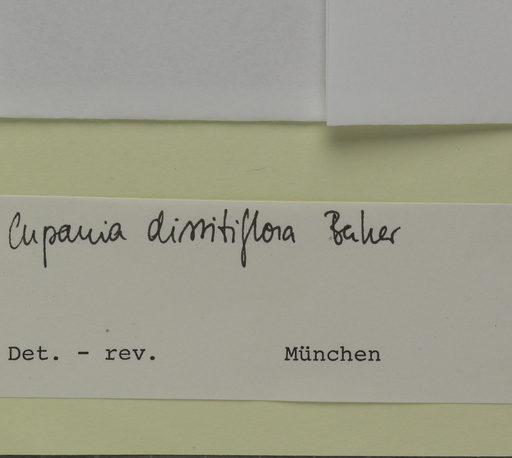 Cupania dissitiflora Baker
Det. - rev. München